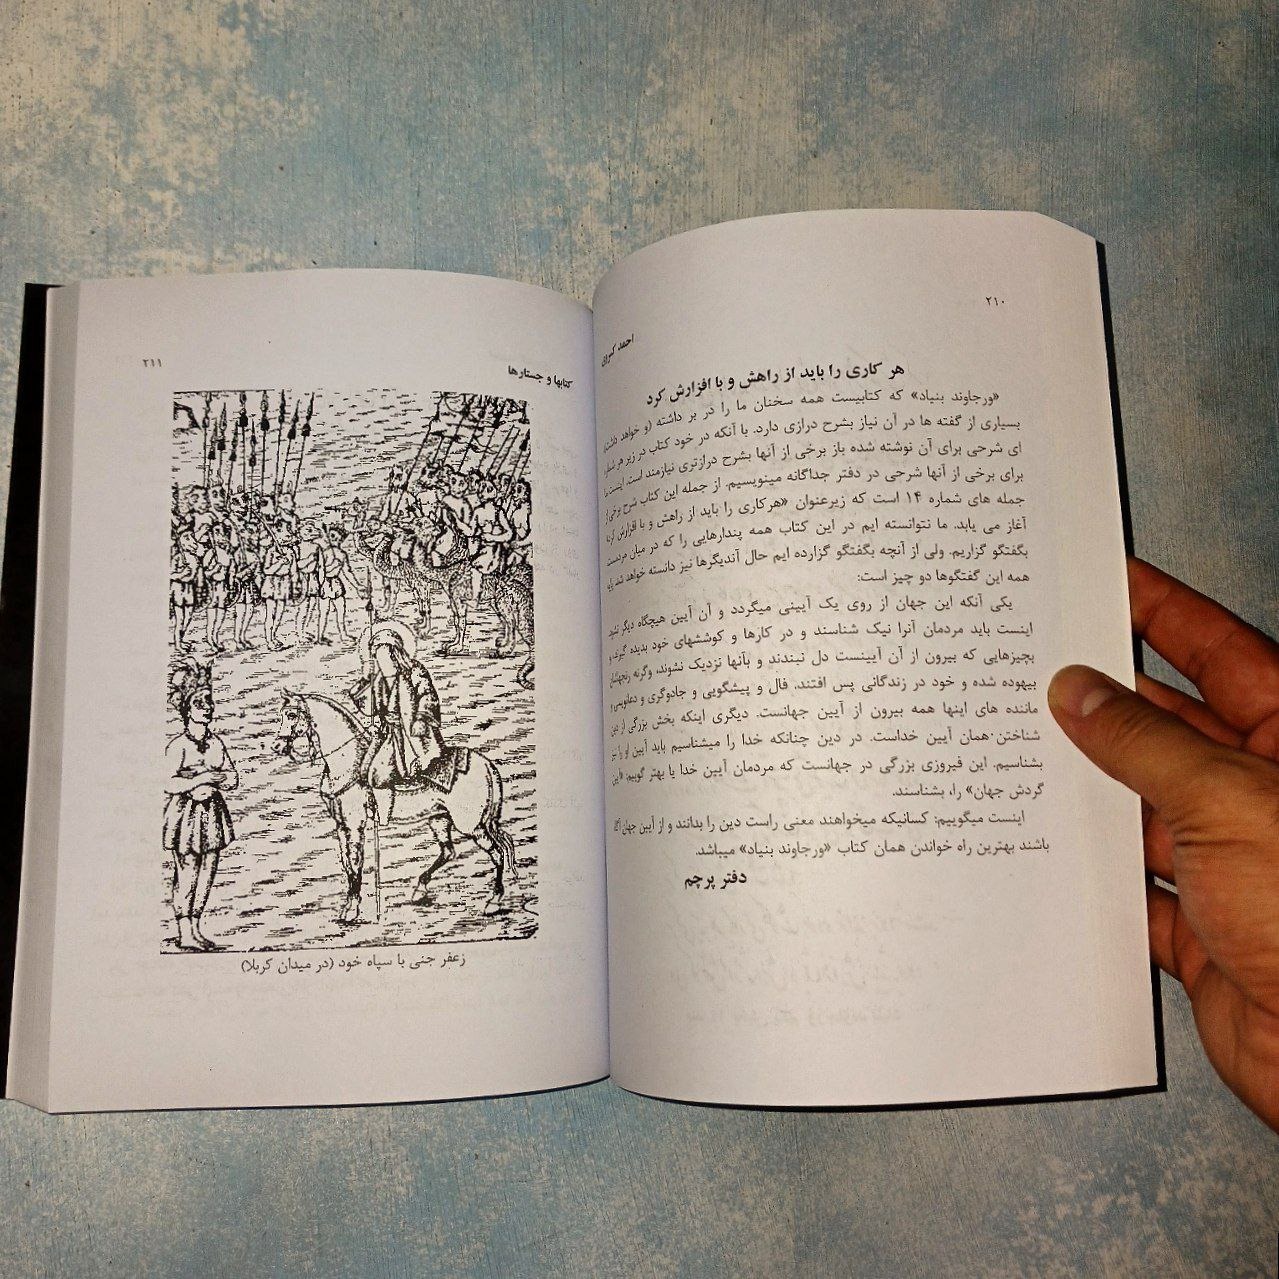 ۲۱۰
احمد کسروی
هر کاری را باید از راهش و با افزارش کرد
«ورجاوند بنیاد» که کتابیست همه سخنان ما را در بر داشته (و خواهد داشت)
بسیاری از گفته ها در آن نیاز بشرح درازی دارد. با آنکه در خود کتاب در زیر هر
ای شرحی برای آن نوشته شده باز برخی از آنها بشرح درازتری نیازمند است. اینست ما
برای برخی از آنها شرحی در دفتر جداگانه مینویسیم. از جمله این کتاب شرح برخی از
جمله های شماره ۱۴ است که زیرعنوان «هرکاری را باید از راهش و با افزارش کرد»
آغاز می یابد. ما نتوانسته ایم در این کتاب همه پندارهایی را که در میان مردمست
بگفتگو گزاریم. ولی از آنچه بگفتگو گزارده ایم حال آندیگرها نیز دانسته خواهد شد. پایه
همه این گفتگوها دو چیز است:
یکی آنکه این جهان از روی یک آیینی میگردد و آن آیین هیچگاه دیگر نشود
اینست باید مردمان آنرا نیک شناسند و در کارها و کوششهای خود بدیده گیرند و
بچیزهایی که بیرون از آن آیینست دل نبندند و بآنها نزدیک نشوند، وگرنه رنجهاشان
بیهوده شده و خود در زندگانی پس افتند. فال و پیشگویی و جادوگری و دعانویسی و
ماننده های اینها همه بیرون از آیین جهانست. دیگری اینکه بخش بزرگی از دین
شناختن همان آیین خداست. در دین چنانکه خدا را میشناسیم باید آیین او را نیز
بشناسیم. این فیروزی بزرگی در جهانست که مردمان آیین خدا یا بهتر گوییم: «آیین
گردش جهان» را، بشناسند.
اینست میگوییم: کسانیکه میخواهند معنی راست دین را بدانند و از آیین جهان آگاه
باشند بهترین راه خواندن همان کتاب «ورجاوند بنیاد» میباشد.
دفتر پرچم
کتابها و جستارها
۲۱۱
زعفر جنی با سپاه خود (در میدان کربلا)